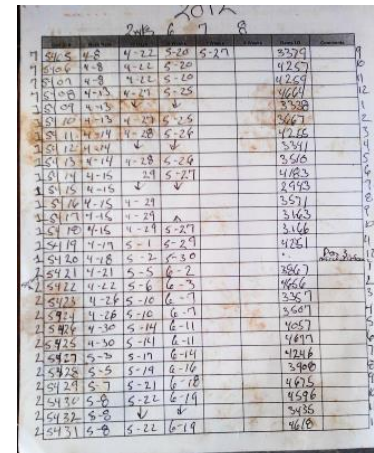 2012
2wks 6 7 8
5405 4-8 4-22 5-20 5-27 3379 9
5406 4-8 4-22 5-20 4257
5407 4-8 4-22 5-20 4259
5408 4-13 4-27 5-25 4664 12
5409 4-13 ↓ ↓ 3338
5410 4-13 4-27 5-25 3667 2
5411 4-14 4-28 5-26 4265 3
5412 4-14 ↓ ↓ 3341 4
5413 4-14 4-28 5-26 3510 5
5414 4-15 29 5-27 4183 6
5415 4-15 ↓ ↓ 2943 7
5416 4-15 4-29 3571 8
5417 4-15 4-29 3163 9
5418 4-15 4-29 5-27 3166 10
5419 4-17 5-1 5-29 4251
5420 4-18 5-2 5-30 12
2 5421 4-21 5-5 6-2 3867 1
5422 4-22 5-6 6-3 4656 2
2 5423 4-26 5-10 6-7 3357 3
5424 4-26 5-10 6-7 3507 4
2 5426 4-30 5-14 6-11 4057 5
2 5425 4-30 5-14 6-11 4677 6
2 5427 5-3 5-17 6-14 4246 7
2 5428 5-5 5-19 6-16 3908 8
2 5429 5-7 5-21 6-18 4675 9
2 5430 5-8 5-22 6-19 4596
2 5432 5-8 ↓ ↓ 3435
2 5431 5-8 5-22 6-19 4618